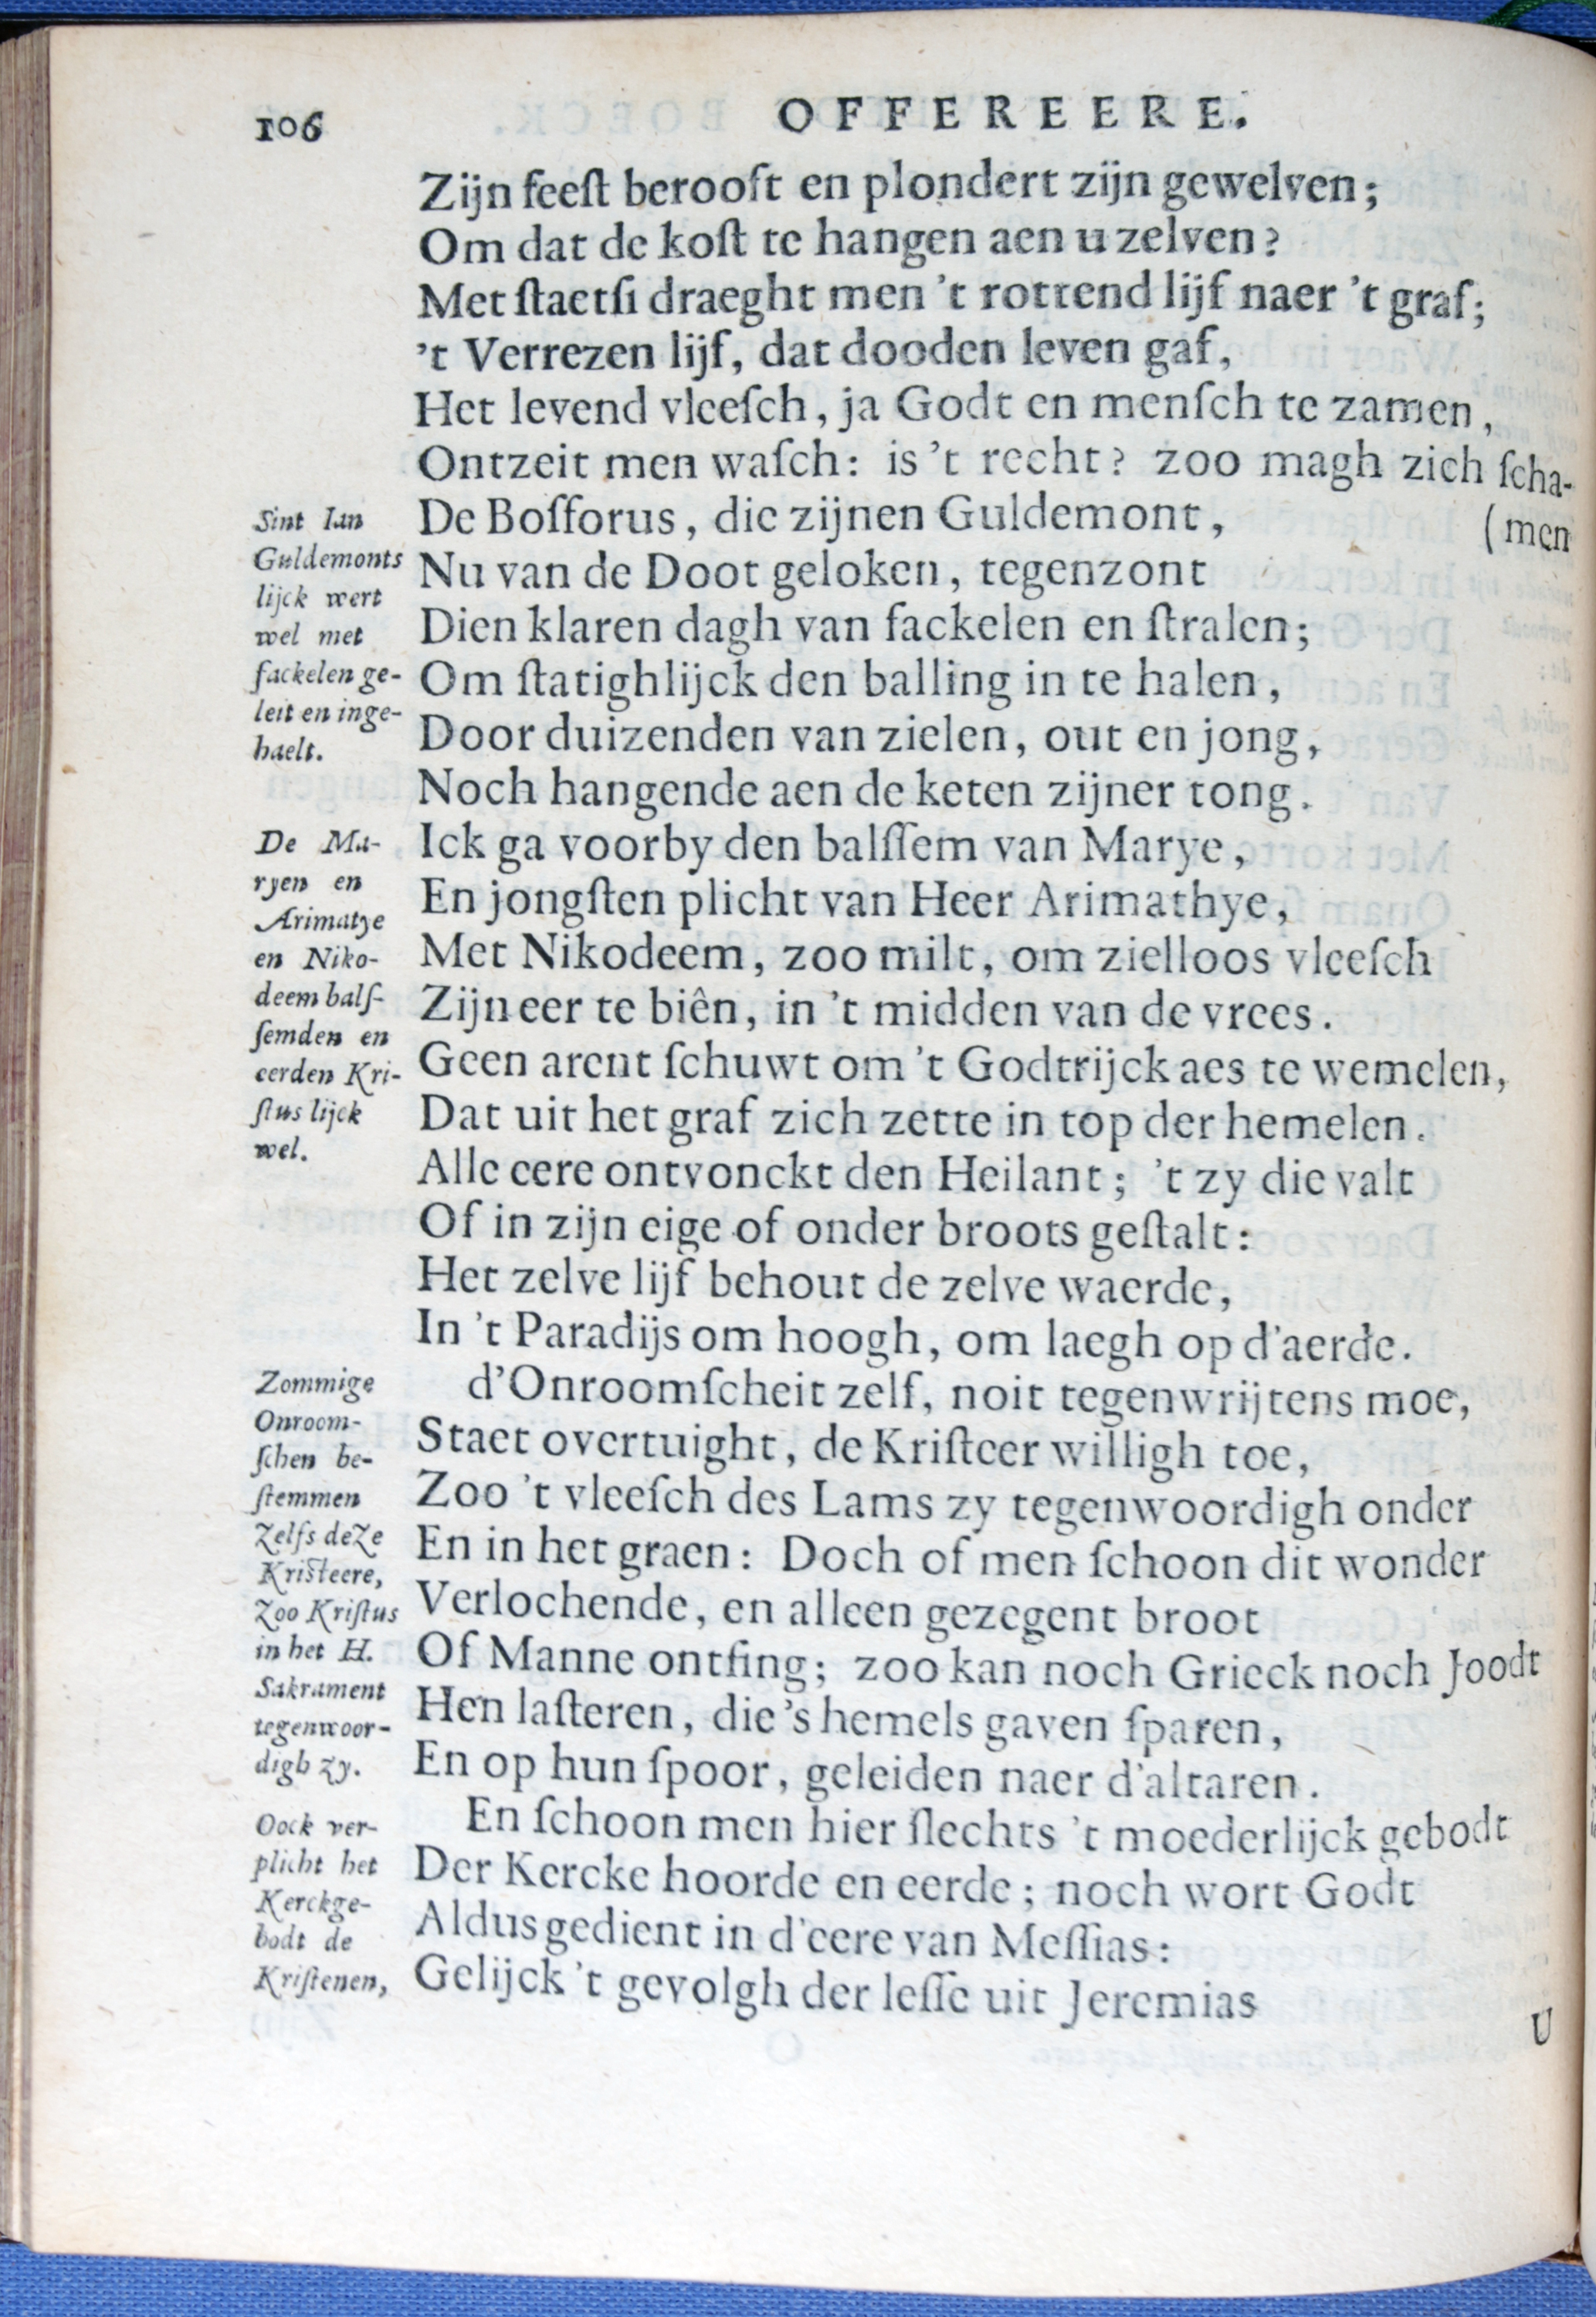 106 OFFEREERE.
Zijn feeſt berooft en plondert zijn gewelven;
Om dat de koſt te hangen aen u zelven?
Met ſtaetſi draeght men 't rottend lijf naer 't graf;
't Verrezen lijf, dat dooden leven gaf,
Het levend vleeſch, ja Godt en menſch te zamen,
Ontzeit men waſch: is 't recht? zoo magh zich ſcha-
(men
De Boſforus, die zijnen Guldemont,
Nu van de Doot geloken, tegenzont
Dien klaren dagh van fackelen en ſtralen;
Om ſtatighlijck den balling in te halen,
Door duizenden van zielen, out en jong,
Noch hangende aen de keten zijner tong.
Ick ga voorby den balſſem van Marye,
En jongſten plicht van Heer Arimathye,
Met Nikodeem, zoo milt, om zielloos vleeſch
Zijn eer te biên, in 't midden van de vrees.
Geen arent ſchuwt om 't Godtrijck aes te wemelen,
Dat uit het graf zich zette in top der hemelen.
Alle eere ontvonckt den Heilant; 't zy die valt
Of in zijn eige of onder broots geſtalt:
Het zelve lijf behout de zelve waerde,
In 't Paradijs om hoogh, om laegh op d'aerde.
d'Onroomſcheit zelf, noit tegenwrijtens moe,
Staet overtuight, de Kriſteer willigh toe,
Zoo 't vleeſch des Lams zy tegenwoordigh onder
En in het graen: Doch of men ſchoon dit wonder
Verlochende, en alleen gezegent broot
Of Manne ontfing; zoo kan noch Grieck noch Joodt
Hen laſteren, die 's hemels gaven ſparen,
En op hun ſpoor, geleiden naer d'altaren.
En ſchoon men hier ſlechts 't moederlijck gebodt
Der Kercke hoorde en eerde; noch wort Godt
Aldus gedient in d'eere van Meſſias:
Gelijck 't gevolgh der leſſe uit Jeremias
U
Sint Ian
Guldemonts
lijck wert
wel met
fackelen ge-
leit en inge-
haelt.
De Ma-
ryen en
Arimatye
en Niko-
deem balſ-
ſemden en
eerden Kri-
ſtus lijck
wel.
Zommige
Onroom-
ſchen be-
ſtemmen
zelfs deze
Kriſteere,
zoo Kriſtus
in het H.
Sakrament
tegenwoor-
digh zy.
Oock ver-
plicht het
Kerckge-
bodt de
Kriſtenen,